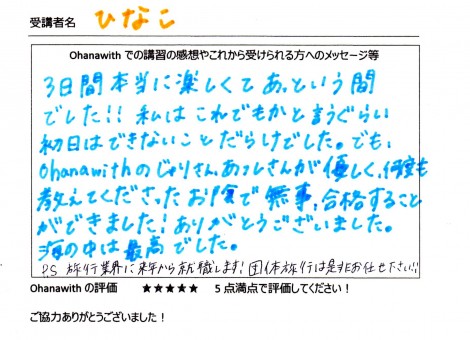 受講者名 ひなこ
Ohanawith での講習の感想やこれから受けられる方へのメッセージ等
3日間本当に楽しくてあっという間
でした!! 私はこれでもかと言うぐらい
初日はできないことだらけでした。でも、
Ohanawithのじゅりさん、あつしさんが優しく、何度も
教えてくださったお陰で無事、合格すること
ができました！ありがとうございました。
海の中は最高でした。
P.S 旅行業界に来年から就職します！団体旅行は是非お任せください!!
Ohanawith の評価 ★★★★★ 5 点満点で評価してください！
ご協力ありがとうございました！